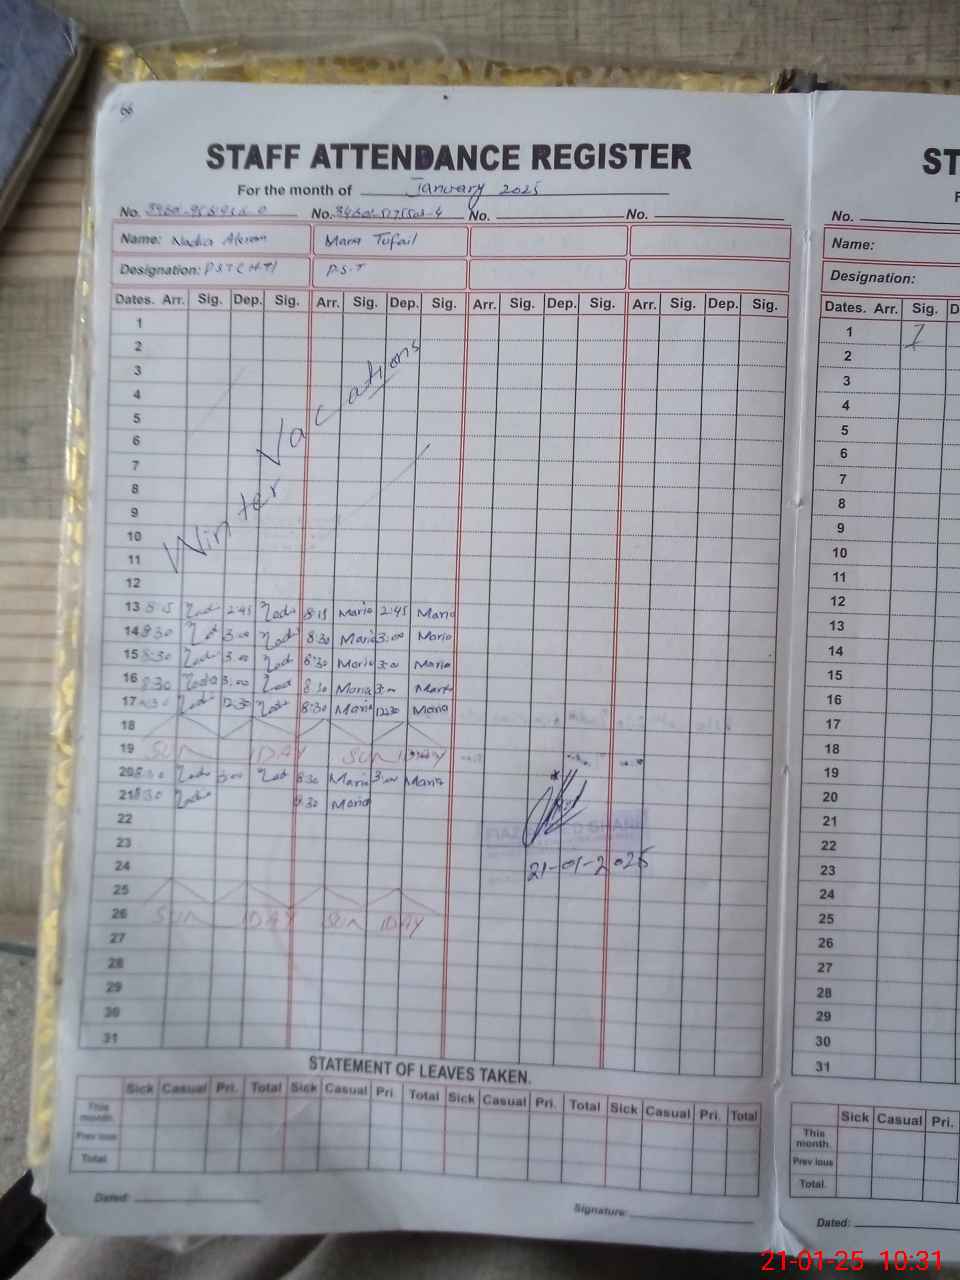 66
STAFF ATTENDANCE REGISTER
For the month of January 2025
No. No. No. No.
Name: Nadia Akram Maria Tufail
Designation: P.S.T (H.T) P.S.T
Dates. Arr. Sig. Dep. Sig. Arr. Sig. Dep. Sig. Arr. Sig. Dep. Sig. Arr. Sig. Dep. Sig.
1
2
3
4
5
6
7
8
9
10
11
12
Winter Vacations
13 8:15 Nadia 2:45 Nadia 8:15 Maria 2:45 Maria
14 8:30 Nadia 3:00 Nadia 8:30 Maria 3:00 Maria
15 8:30 Nadia 3:00 Nadia 8:30 Maria 3:00 Maria
16 8:30 Nadia 3:00 Nadia 8:30 Maria 3:00 Maria
17 8:30 Nadia 12:30 Nadia 8:30 Maria 12:30 Maria
18
19 SUN DAY SUN DAY
20 8:30 Nadia 3:00 Nadia 8:30 Maria 3:00 Maria
21 8:30 Nadia 8:30 Maria
22
23
21-01-2025
24
25
26 SUN DAY SUN DAY
27
28
29
30
31
STATEMENT OF LEAVES TAKEN.
Sick Casual Pri. Total Sick Casual Pri. Total Sick Casual Pri. Total Sick Casual Pri. Total
This month.
Prev ious
Total
Dated: Signature:
ST
F
No.
Name:
Designation:
Dates. Arr. Sig. D
1
2
3
4
5
6
7
8
9
10
11
12
13
14
15
16
17
18
19
20
21
22
23
24
25
26
27
28
29
30
31
Sick Casual Pri.
This month.
Prev ious
Total.
Dated:
21-01-25 10:31